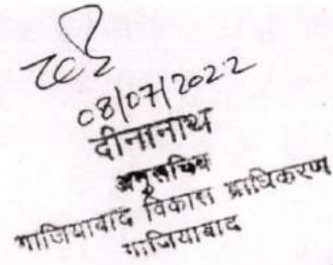 08/07/2022
दीनानाथ
अनुसचिव
गाजियाबाद विकास प्राधिकरण
गाजियाबाद